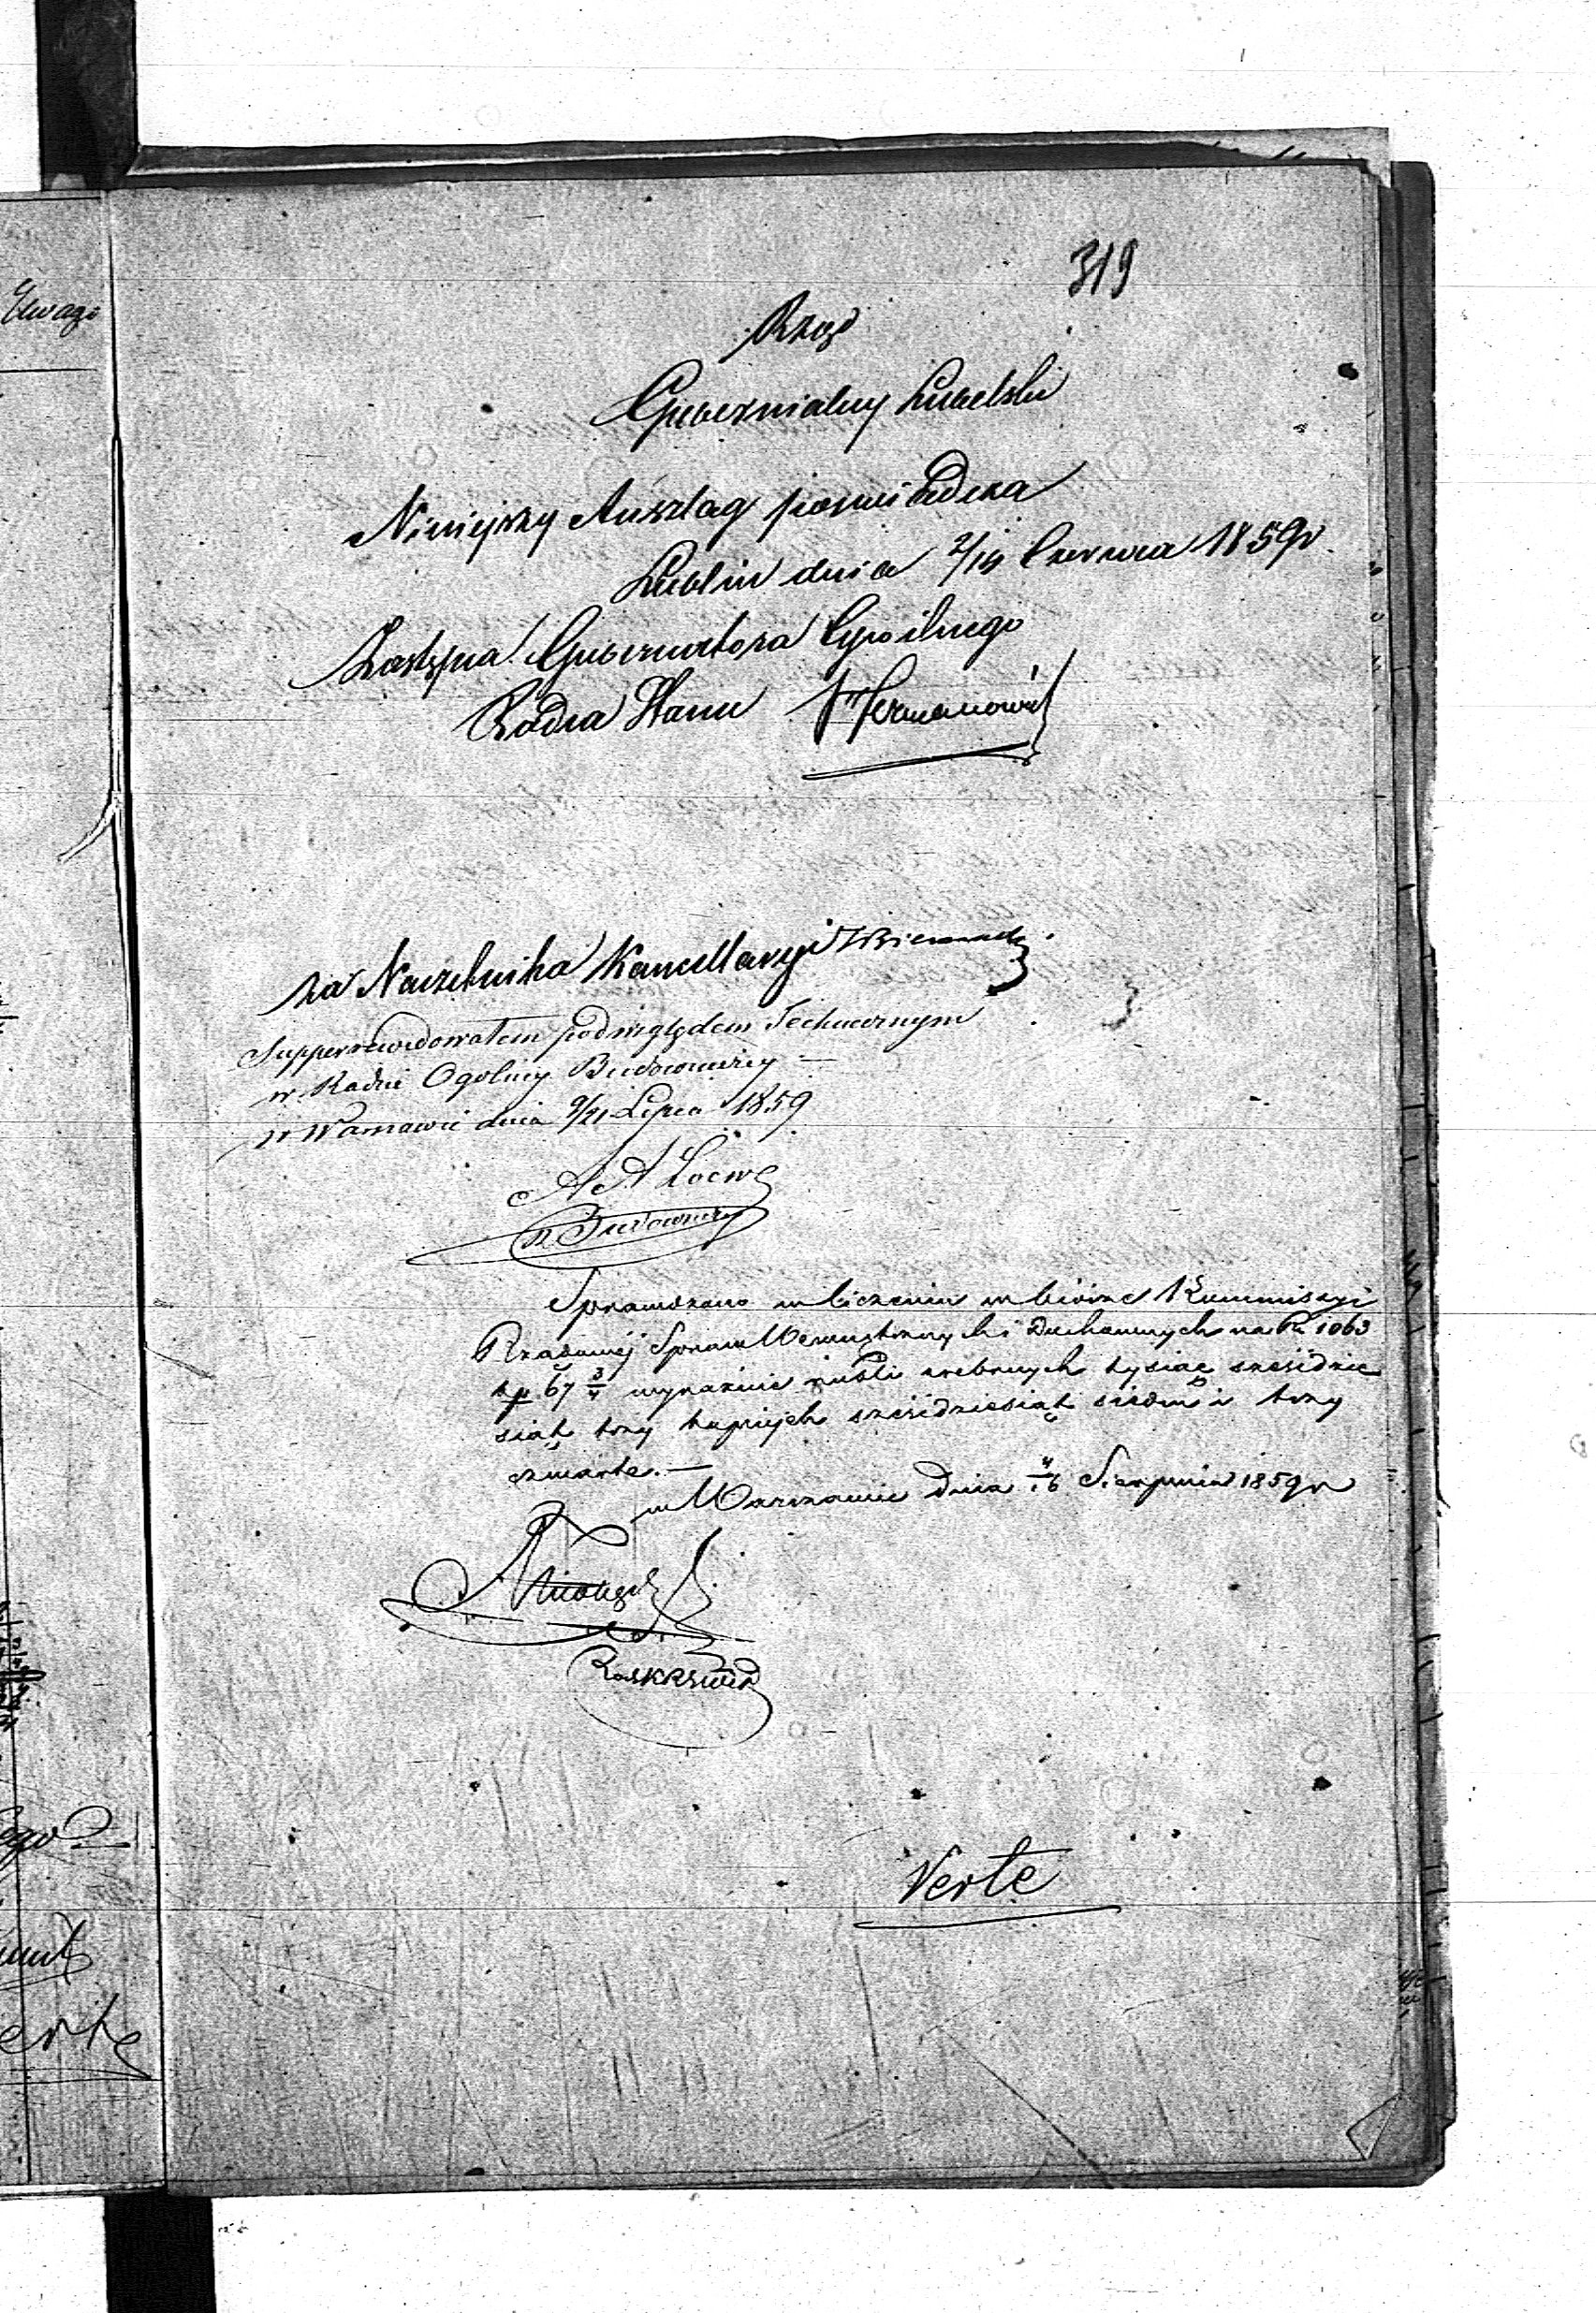 Uwago
319
Rząd
Gubernialny Lubelski
Niniejszy Anszlag poświadcza
Lublin dnia 2/14 Czerwca 1859 r.
Zastępca Gubernatora Cywilnego
Radca Stanu Hermanowicz
za Naczelnika Kancellaryi
Superrewidowałem pod względem Technicznym
w Radzie Ogólnej Budowniczej
w Warszawie dnia 9/21 Lipca 1859
A A Loewe
R. Budowniczy
Sprawdzono w liczeniu w biórze Kommissyi
Rządowej Spraw Wewnętrznych i Duchownych na Rs 1063
kp 67 3/4 wyraźnie rubli srebrnych tysiąc sześćdzie
siąt trzy kopiejek sześćdziesiąt siedm i trzy
czwarte. —
w Warszawie dnia 4/16 Sierpnia 1859 r
Verte